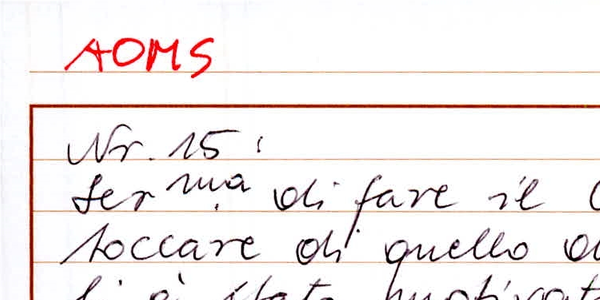 AOMS
Nr. 15:
Ser.ma di fare il
toccare di quello
è stato